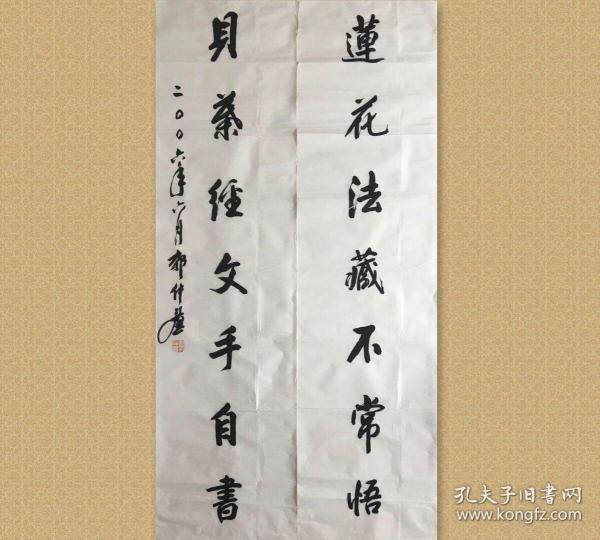 蓮花法藏不常悟
貝葉經文手自書
二〇〇六年六月
孔夫子旧书网
www.kongfz.com